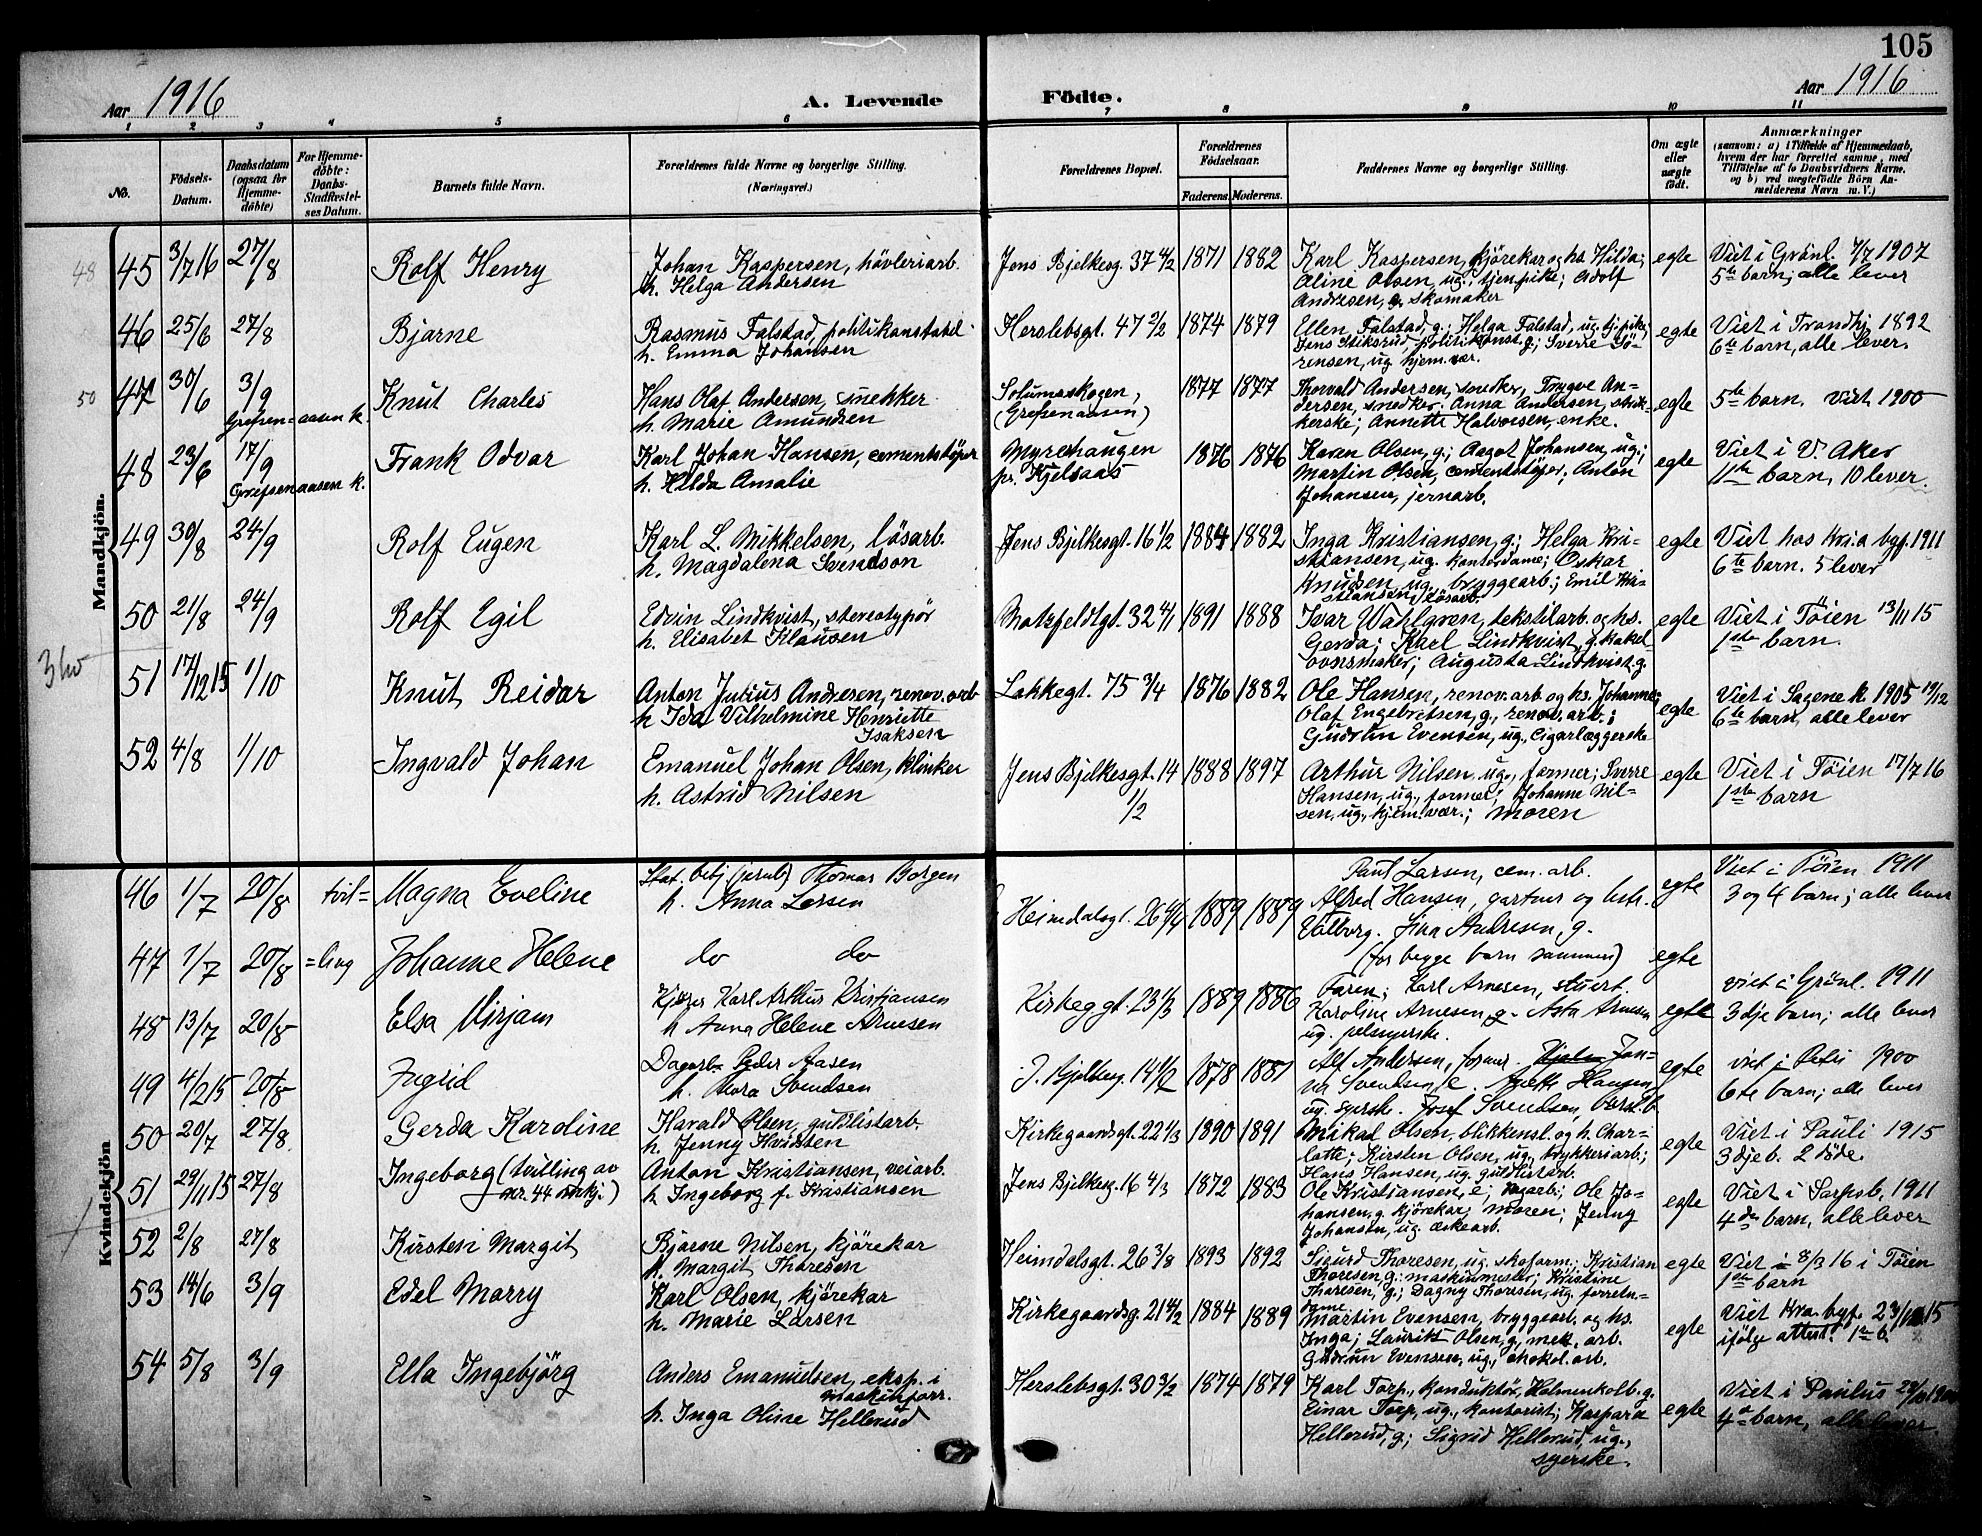 105
Aar 1916
A. Levende Födte.
Aar 1916
1 2 3 4 5 6 7 8 9 10 11
No.
Födsels-
Datum.
Daabsdatum
(ogsaa for
Hjemme-
döbte)
For Hjemme-
döbte:
Daabs-
Stadfæstel-
ses Datum.
Barnets fulde Navn.
Forældrenes fulde Navne og borgerlige Stilling.
(Næringsvei.)
Forældrenes Bopæl.
Forældrenes
Födselsaar.
Faderens. Moderens.
Faddernes Navne og borgerlige Stilling.
Om ægte
eller
uægte
født.
Anmærkninger
(saasom: a) i Tilfælde af Hjemmedaab,
hvem der har forrettet samme, med
Tilföielse af to Daabsvidners Navne,
og b) ved uægtefödte Börn An-
melderens Navn m. V.)
Mandkjön.
48
45 3/7 16 27/8 Rolf Henry
Johan Kaspersen, hövleriarb.
h. Helga Andersen
Jens Bjelkesg. 37 4/2 1871 1882
Karl Kaspersen, kjörekar og hs. Hilda;
Aline Olsen, ug., tjen.pike; Adolf
Andresen, g. skomaker
egte
Viet i Grönl. 7/7 1907
5te barn, alle lever
46 25/6 27/8 Bjarne
Rasmus Falstad, politikonstabel
h. Emma Johansen
Herslebsgt. 47 2/2 1874 1879
Ellen Falstad, g.; Helga Falstad, ug. tj.pike;
Jens Stiksrud politikonst. g.; Sverre Sö-
rensen, ug. hjem.vær.
egte
Viet i Trondhj. 1892
6te barn, alle lever.
50
47 30/6 3/9 Knut Charles
Grefsen-aasen k.
Hans Olaf Andersen, snekker
h. Marie Amundsen
Solumsskogen,
(Grefsenaasen)
1877 1877
Thorvald Andersen, snedker, Trygve An-
dersen, snedker. Anna Andersen, strik-
kerske; Annette Halvorsen, enke.
egte
5te barn. viet 1900
48 23/6 17/9 Frank Odvar
Grefsenaasen k.
Karl Johan Hansen, cementstöper
h. Hilda Amalie
Myrerhaugen
pr. Kjelsaas
1876 1876
Karen Olsen, g; Aagot Johansen, ug.;
Martin Olsen, cementstöper; Anton
Johansen, jernarb.
egte
Viet i V. Aker
11te barn, 10 lever.
49 30/8 24/9 Rolf Eugen
Karl L. Mikkelsen, lösarb.
h. Magdalena Svendson
Jens Bjelkesgt. 16 1/2 1884 1882
Inga Kristiansen, g; Helga Kri-
stiansen, ug. kontordame; Oskar
Knudsen, ug. bryggearb.; Emil Kri-
stiansen, lösarb.
egte
Viet hos Kr.a byf. 1911
6te barn. 5 lever
50 21/8 24/9 Rolf Egil
Edvin Lindkvist, stereotypör
h. Elisabet Klausen
Motzfeldtgt. 32 4/1 1891 1888
Ivar Wahlgren, tekstilarb. og hs.
Gerda; Karl Lindkvist, g. kakel
ovnsmaker; Augusta Lindkvist, g.
egte
Viet i Töien 13/11 15
1ste barn.
51 17/12 15 1/10 Knut Reidar
Anton Julius Andresen, renov. arb
h Ida Vilhelmine Henriette
Isaksen
Lakkegt. 75 3/4 1876 1882
Ole Hansen, renov. arb. og hs. Johanne;
Olaf Engebretsen, g., renov. arb.;
Gudrun Evensen, ug., cigarlæggerske
egte
Viet i Sagene k. 1905 19/12
6te barn, alle lever
52 4/8 1/10 Ingvald Johan
Emanuel Johan Olsen, klinker
h. Astrid Nilsen
Jens Bjelkesgt. 14
1/2
1888 1897
Arthur Nilsen, ug., former; Sverre
Hansen, ug., former; Johanne Nil-
sen, ug., hjem.vær.; moren
egte
Viet i Töien 17/7 16
1ste barn
Kvindekjön
46 1/7 20/8 tvil= Magna Eveline
Stat. betj. (jernb) Thomas Borgen
h. Anna Larsen
Heimdalsgt. 26 4/4 1889 1889
Paul Larsen, cem. arb.
Alfred Hansen, gartner og hstr.
Valborg. Lina Andresen, g.
(for begge barn sammen)
egte
Viet i Töien 1911
3 og 4 barn; alle lever
47 1/7 20/8 =ling Johanne Helene
do do
egte
48 13/7 20/8 Elsa Mirjam
Kjører Karl Arthur Kristjansen
h Anna Helene Arnesen
Kirkeggt. 23 1/3 1889 1886
Faren; Karl Arnesen, stuert.
Karoline Arnesen, g. Asta Arnesen
ug. pelssyerske.
egte
viet i Grönl. 1911
3dje barn; alle lever
49 4/2 15 20/8 Ingrid
Dagarb. Peder Aasen
h. Thora Svendsen
J. Bjelkesg. 14 1/2 1878 1881
Alf Andersen, former.
Svendsen, e. Hansen
ug. syerske. Josef Svendsen,
egte
viet i Petri 1900
6te barn; alle lever
50 20/7 27/8 Gerda Karoline
Harald Olsen, guldlistarb.
h. Jenny Hvidsten
Kirkegaardsgt. 22 1/3 1890 1891
Mikal Olsen, blikkensl. og h. Char-
lotte; Kirsten Olsen, ug., brykkeriarb.;
Hans Hansen, ug. guldlistarb.
egte
Viet i Pauli 1915
3dje b. 2 döde.
51 29/11 15 27/8 Ingeborg (tvilling av
nr. 44 mkj.)
Anton Kristiansen, veiarb.
h. Ingeborg f. Kristiansen
Jens Bjelkesg. 16 4/3 1872 1883
Ole Kristiansen, e; sagarb.; Ole Jo-
hansen, g. kjörekar; moren; Jenny
Johansen, ug. æskearb.
egte
Viet i Sarpsb. 1911
4de barn, alle lever
52 2/8 27/8 Kirsten Margit
Bjarne Nilsen, kjörekar
h. Margit Thoresen
Heimdalsgt. 26 3/8 1893 1892
Sigurd Thoresen, ug. skoform.; Kristian
Thoresen, g.; maskinmester; Kristine
Thoresen, g.; Dagny Thoresen, ug. forretn-
dame
egte
Viet i 8/3 16 i Töien
1ste barn
53 14/6 3/9 Edel Marry
Karl Olsen, kjörekar
h. Marie Larsen
Kirkegaardsg. 21 4/2 1884 1889
Martin Evensen, bryggearb. og hs.
Inga; Laurits Olsen, g, mek. arb.
Gudrun Evensen, ug., chokol. arb.
egte
Viet Kra. byf. 15
ifölge attest. 1ste b.
54 5/8 3/9 Ella Ingebjörg
Anders Emanuelsen, eksp. i
maskinforr.
h. Inga Oline Hellerud
Herslebsgt. 30 3/2 1874 1879
Karl Torp, konduktör, Holmenkolb. g.
Einar Torp, ug., kontorist; Kaspara
Hellerud, g; Sigrid Hellerud, ug.,
syerske.
egte
Viet i Paulus
4de barn, alle lever